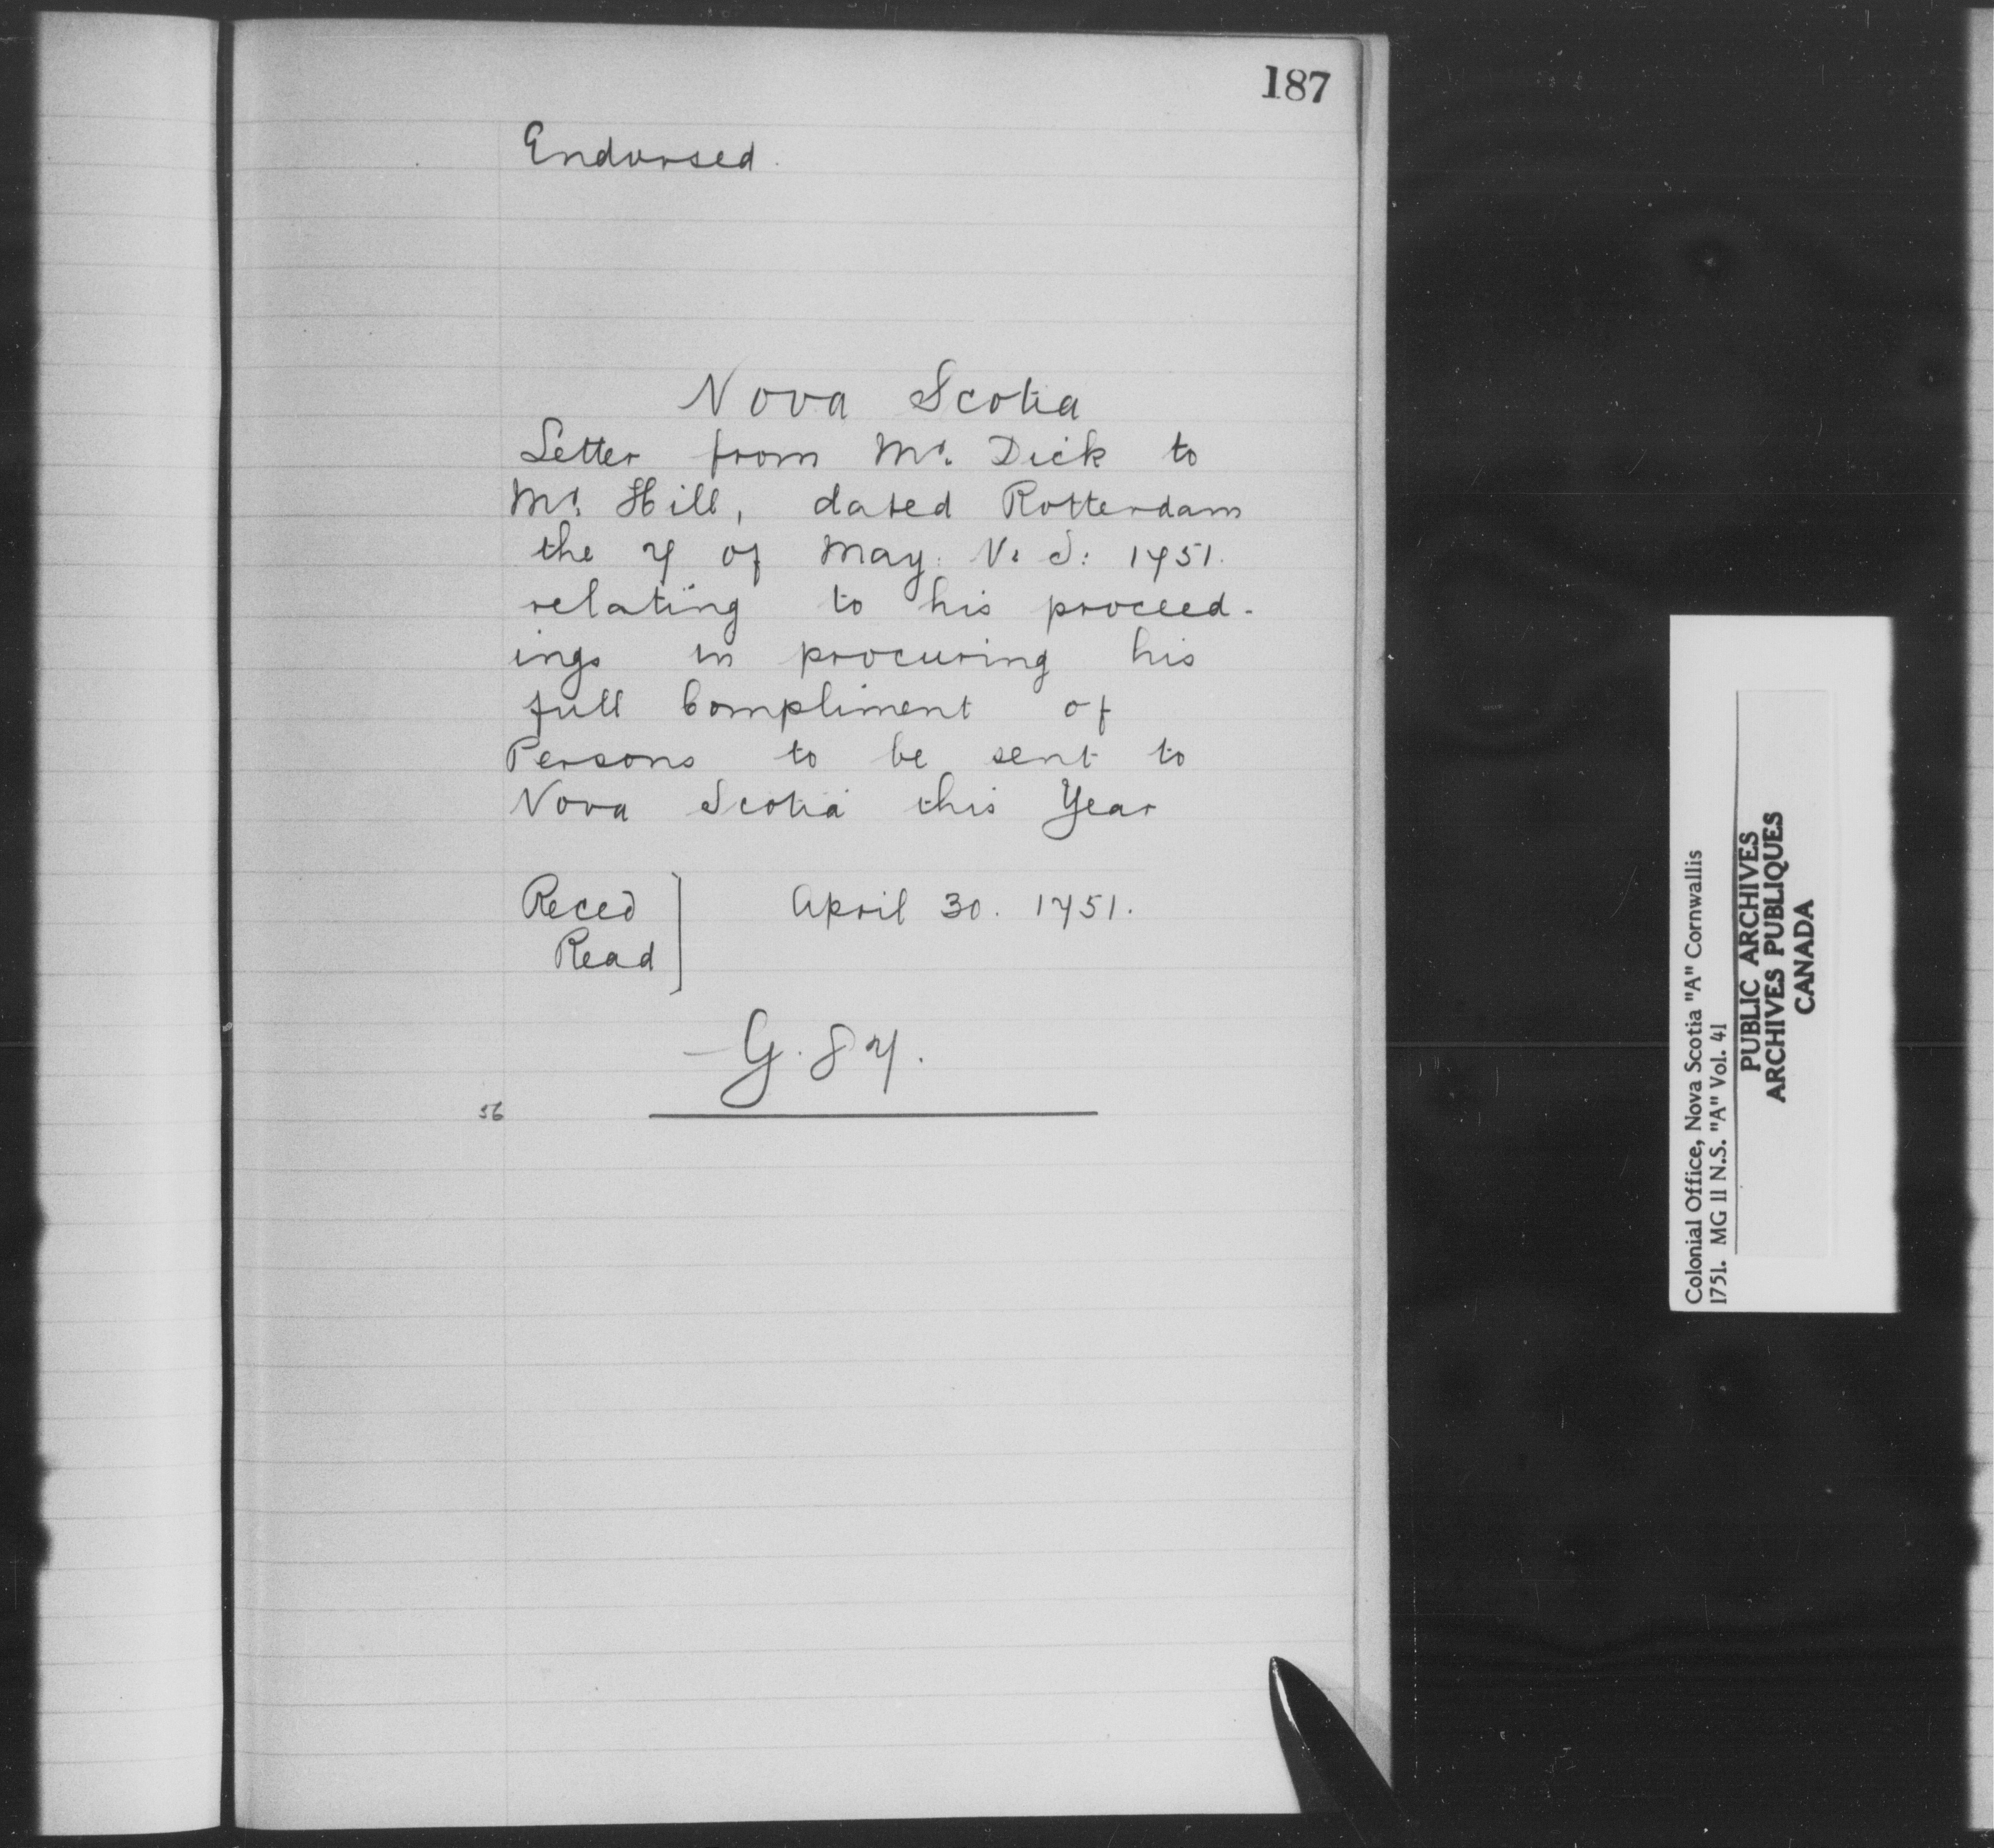 187
Endorsed.
Nova Scotia
Letter from Mr. Dick to
Mr. Hill, dated Rotterdam
the 7 of May. N: S: 1751.
relating to his proceed-
ings in procuring his
full Compliment of
Persons to be sent to
Nova Scotia this Year
Reced ] April 30. 1751.
Read
G. 87.
56
Colonial Office, Nova Scotia "A" Cornwallis
1751. MG 11 N.S. "A" Vol. 41
PUBLIC ARCHIVES
ARCHIVES PUBLIQUES
CANADA